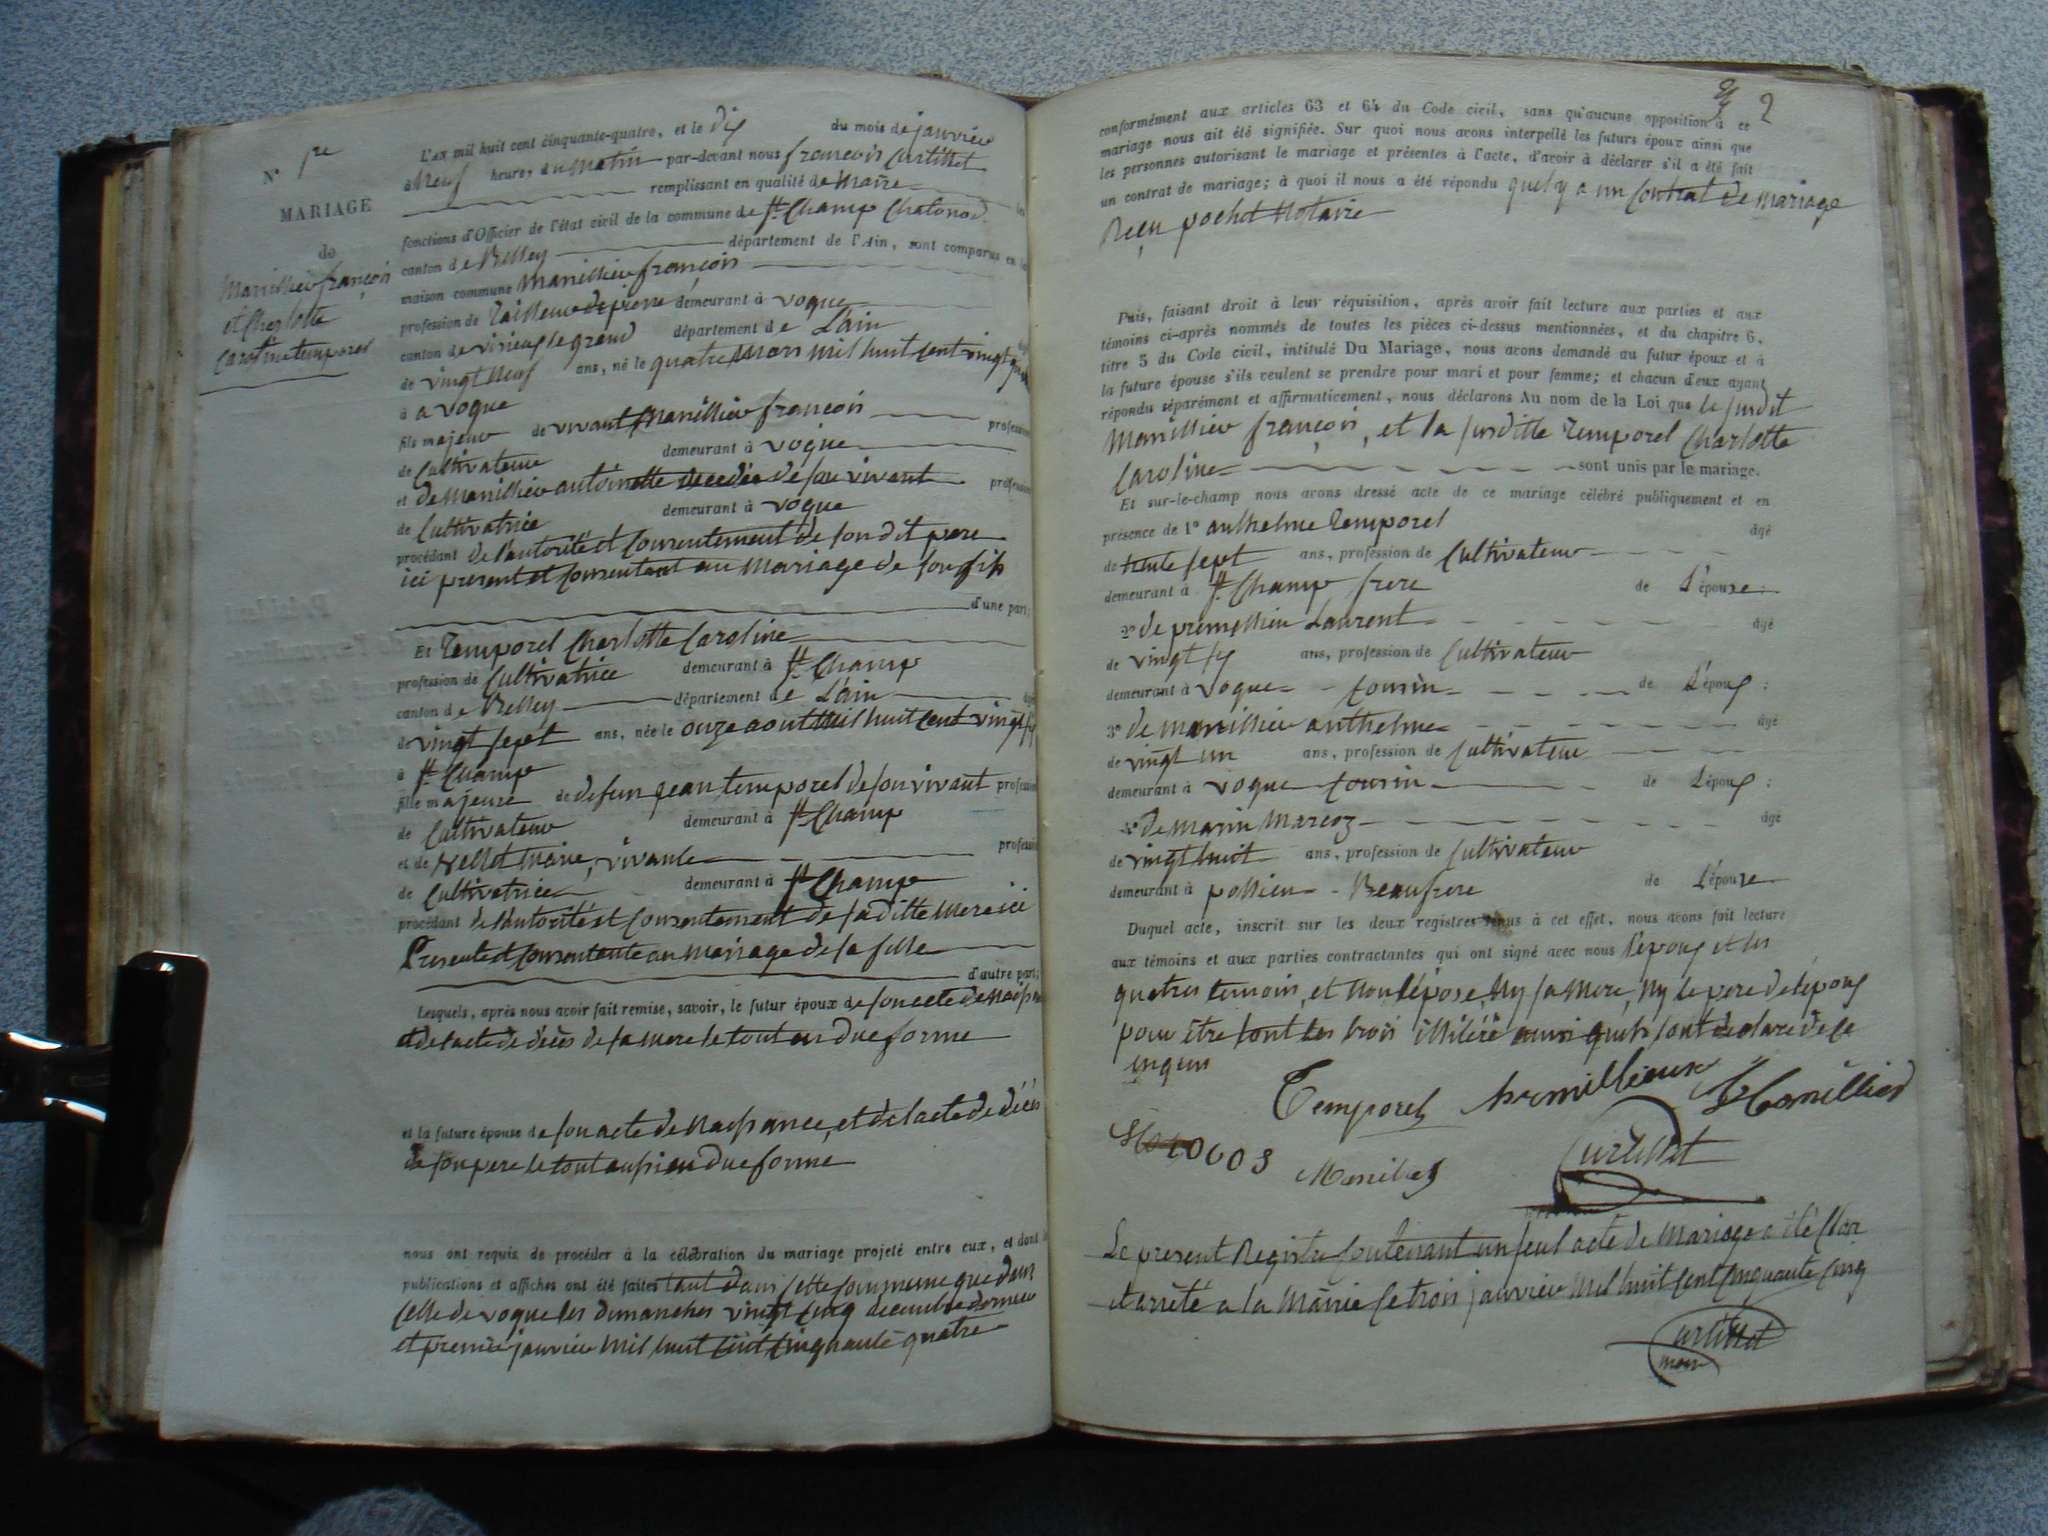 N° 1re
MARIAGE
de
Marillier françois
et Charlotte
Caroline temporel
L'AN mil huit cent cinquante-quatre, et le dix du mois de janvier
à Neuf heures du matin par-devant nous françois Curtillet
remplissant en qualité de Maire les
fonctions d'Officier de l'état civil de la commune de St Champ Chatonod
canton de Belley département de l'Ain, sont comparus en la
maison commune Marillier françois
profession de Tailleur de pierre demeurant à vogue
canton de virieux le grand département de L'ain âgé
de vingt Neuf ans, né le quatre Mars mil huit cent vingt quatre
à a vogue
fils majeur de vivant Marillier françois profession
de Cultivateur demeurant à vogue
et de Marillier antoinette decedée de son vivant profession
de Cultivatrice demeurant à vogue
procédant de l'autorité et Consentement de son dit pere
ici present et Consentant au Mariage de son fils
d'une part;
Et Temporel Charlotte Caroline
profession de Cultivatrice demeurant à St Champ
canton de Belley département de L'ain âgée
de vingt sept ans, née le onze aout Mil huit Cent vingt
à St Champ
fille majeure de defun jean temporel de son vivant profession
de Cultivateur demeurant à St Champ
et de Marie, vivante profession
de Cultivatrice demeurant à St Champ
procédant de l'autorité et Consentement de sa ditte Mere ici
Presente et Consentente au Mariage de sa fille
d'autre part;
Lesquels, après nous avoir fait remise, savoir, le futur époux de son acte de Naissance
et de l'acte de décès de sa mere le tout en Due forme
et la future épouse de son acte de Naissance, et de l'acte de décès
de son pere le tout aussi en Due forme
nous ont requis de procéder à la célébration du mariage projeté entre eux, et dont les
publications et affiches ont été faites tant dans Cette Commune que dans
Celle de vogue les dimanches vingt Cinq decembre dernier
et premier janvier Mil huit Cent Cinquante quatre
2
conformément aux articles 63 et 64 du Code civil, sans qu'aucune opposition à ce
mariage nous ait été signifiée. Sur quoi nous avons interpellé les futurs époux ainsi que
les personnes autorisant le mariage et présentes à l'acte, d'avoir à déclarer s'il a été fait
un contrat de mariage; à quoi il nous a été répondu quel y a un Contrat de Mariage
Reçu pochet Notaire
Puis, faisant droit à leur réquisition, après avoir fait lecture aux parties et aux
témoins ci-après nommés de toutes les pièces ci-dessus mentionnées, et du chapitre 6,
titre 5 du Code civil, intitulé Du Mariage, nous avons demandé au futur époux et à
la future épouse s'ils veulent se prendre pour mari et pour femme; et chacun d'eux ayant
répondu séparément et affirmativement, nous déclarons Au nom de la Loi que le susdit
Marillier françois, et la susditte Temporel Charlotte
Caroline sont unis par le mariage.
Et sur-le-champ nous avons dressé acte de ce mariage célébré publiquement et en
présence de 1° anthelme Temporel âgé
de trente sept ans, profession de Cultivateur
demeurant à St Champ frere de L'épouse;
2° de premillieu Laurent âgé
de vingt six ans, profession de Cultivateur
demeurant à vogue Cousin de L'époux;
3° de Marillier anthelme âgé
de vingt un ans, profession de Cultivateur
demeurant à vogue Cousin de L'époux;
4° de Marin Marcoz âgé
de vingt huit ans, profession de Cultivateur
demeurant à pollieu Beaufrere de L'épouse
Duquel acte, inscrit sur les deux registres tenus à cet effet, nous avons fait lecture
aux témoins et aux parties contractantes qui ont signé avec nous l'époux et les
quatres temoins, et Non l'épose, Ny sa Mere, Ny le pere de l'époux
pour être tout les trois illitéré ainsi quils l'ont declaré de ce
enquis
Temporel premillieux Marillier
Marillier Curtillet
Le present Registre Contenant un seul acte de Mariage a été Clos
et arrêté a la Mairie le trois janvier Mil huit Cent Cinquante Cinq
Curtillet
maire